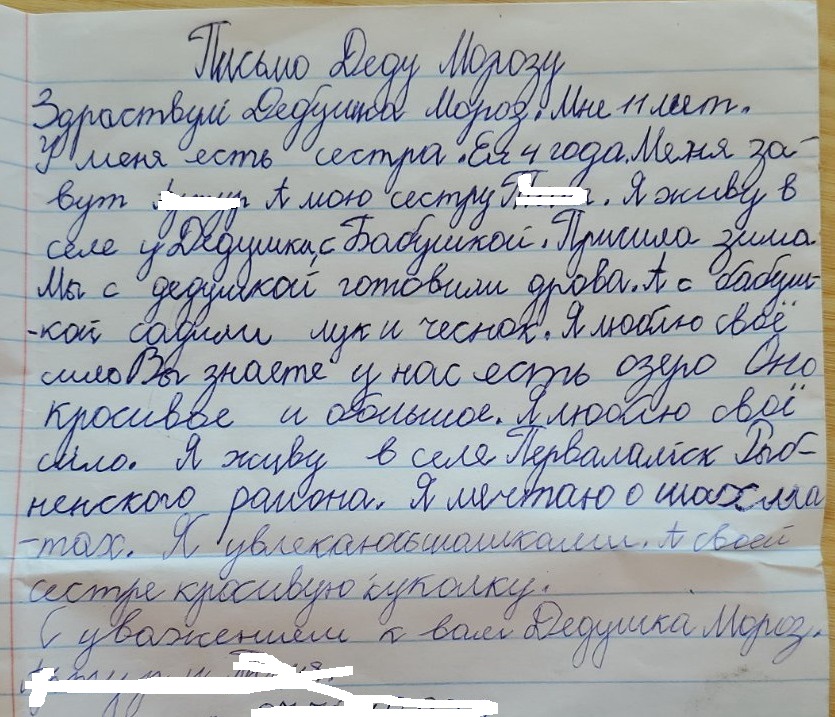 Письмо Деду Морозу
Здраствуй Дедушка Мороз. Мне 11 лет.
У меня есть сестра. Ей 4 года. Меня за-
вут А мою сестру Я живу в
селе у Дедушки, с Бабушкой. Пришла зима
Мы с дедушкой готовили дрова. А с бабуш-
-кой садили лук и чеснок. Я люблю своё
село Вы знаете у нас есть озеро Оно
красивое и большое. Я люблю своё
село. Я живу в селе
района. Я мечтаю о шахма
-тах. Я увлекаюсь шашками. А своей
сестре красивую куколку.
С уважением к вам Дедушка Мороз.